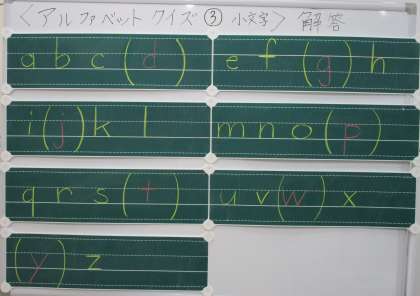 ＜アルファベットクイズ③小文字＞ 解答
a b c (d)
e f (g) h
i (j) k l
m n o (p)
q r s (t)
u v (w) x
(y) z